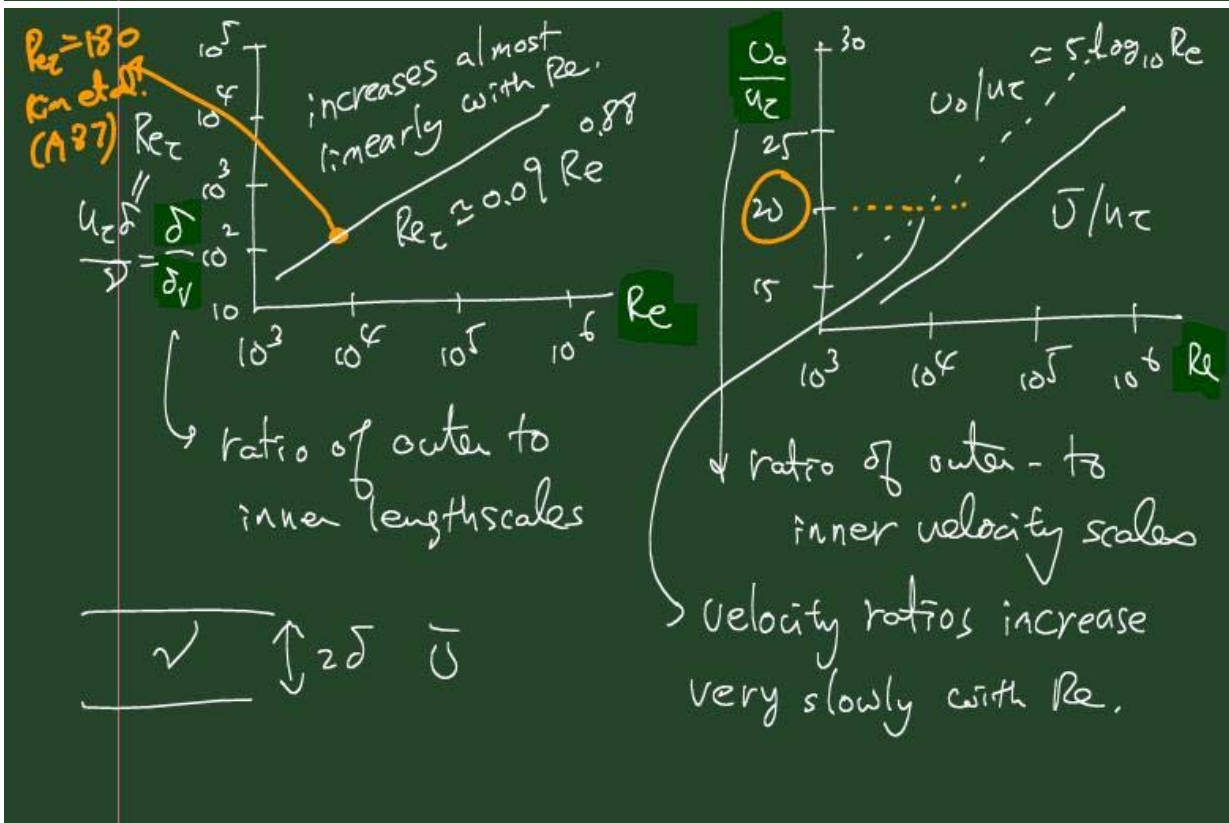 Reτ = 180
Kim et al.
(1987)
Reτ
||
uτδ/ν = δ/δν
10⁵
10⁴
10³
10²
10
increases almost
linearly with Re.
Reτ ≃ 0.09 Re^0.88
10³ 10⁴ 10⁵ 10⁶ Re
ratio of outer to
inner lengthscales
ν 2δ Ū
U₀/uτ
30
25
20
15
U₀/uτ ≃ 5 log₁₀ Re
Ū/uτ
10³ 10⁴ 10⁵ 10⁶ Re
ratio of outer- to
inner velocity scales
velocity ratios increase
very slowly with Re.